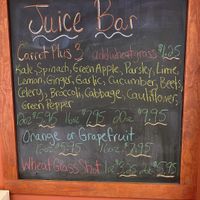 Juice Bar
Carrot Plus 3 add wheatgrass $1.25
Kale, Spinach, Green Apple, Parsley, Lime,
Lemon, Ginger, Garlic, Cucumber, Beets,
Celery, Broccoli, Cabbage, Cauliflower,
Green Pepper
12oz $5.95 16oz $7.95 20oz $9.95
Orange or Grapefruit
12oz $5.75 16oz $7.95
Wheat Grass Shot 1oz 2oz $5.95